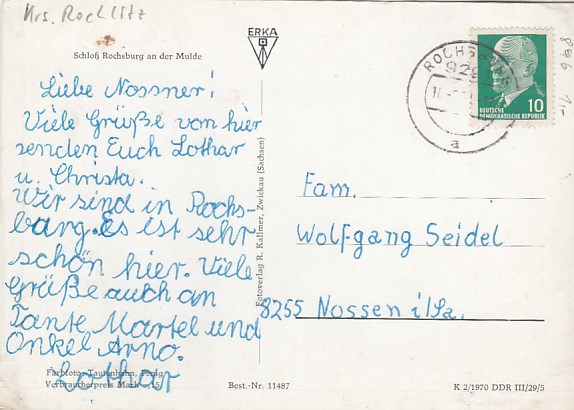 Krs. Rochlitz
Schloß Rochsburg an der Mulde
Liebe Nossner!
Viele Grüße von hier
senden Euch Lothar
u. Christa.
Wir sind in Rochs-
burg. Es ist sehr
schön hier. Viele
Grüße auch an
Tante Martel und
Onkel Arno.
Lothar
Farbfoto: Tautenhahn, Penig
Verbraucherpreis Mark -,15
Best.-Nr. 11487
ERKA
Fotoverlag R. Kallmer, Zwickau (Sachsen)
ROCHSBURG
a
10
DEUTSCHE
DEMOKRATISCHE REPUBLIK
Fam.
Wolfgang Seidel
8255 Nossen i/Sa.
K 2/1970 DDR III/29/5